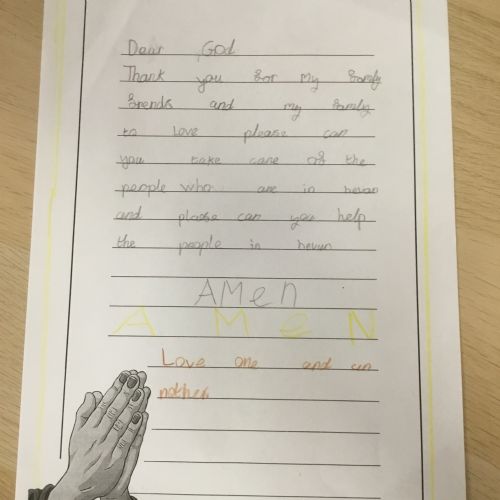 Dear God
Thank you for my family
frends and my family
to love please can
you take care of the
people who are in hevan
and please can you help
the people in hevun
AMen
A M e N
Love one and un
nother